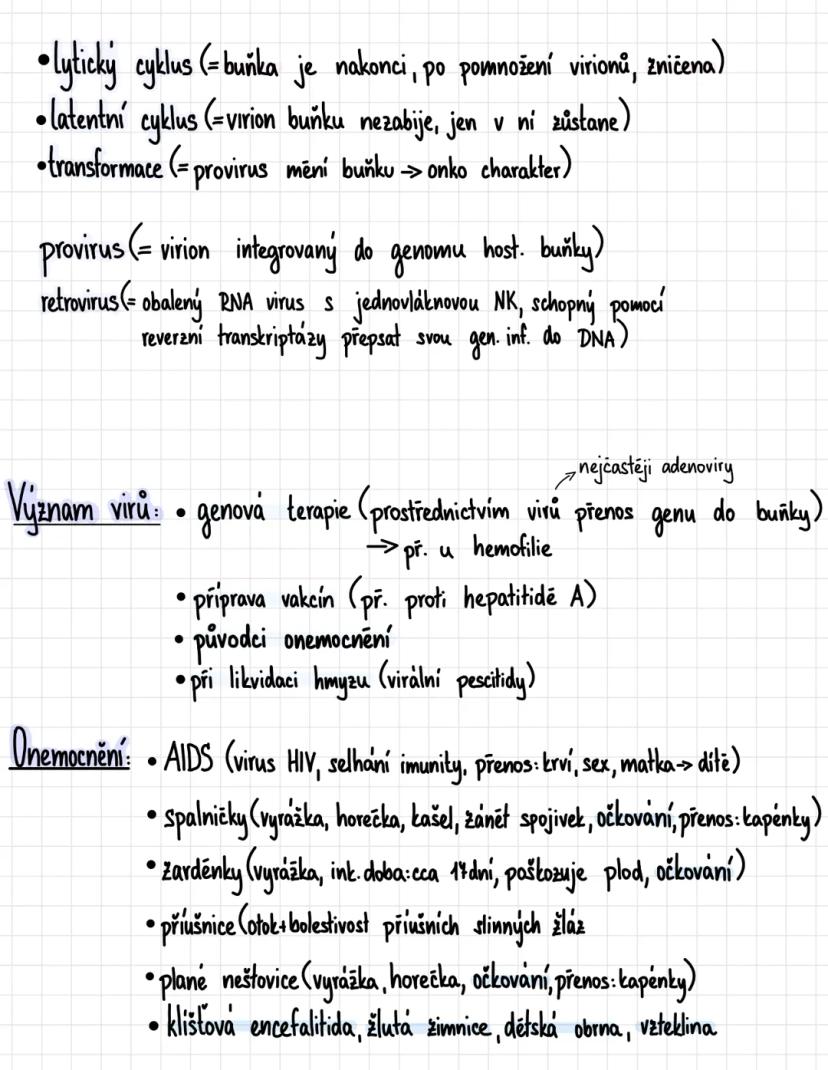 •lytický cyklus (=buňka je nakonci, po pomnožení virionů, zničena)
•latentní cyklus (=virion buňku nezabije, jen v ní zůstane)
•transformace (=provirus mění buňku → onko charakter)
provirus (= virion integrovaný do genomu host. buňky)
retrovirus (= obalený RNA virus s jednovláknovou NK, schopný pomocí
reverzní transkriptázy přepsat svou gen. inf. do DNA)
→ nejčastěji adenoviry
Význam virů: • genová terapie (prostřednictvím virů přenos genu do buňky)
→ př. u hemofilie
• příprava vakcín (př. proti hepatitidě A)
• původci onemocnění
• při likvidaci hmyzu (virální pescitidy)
Onemocnění: • AIDS (virus HIV, selhání imunity, přenos: krví, sex, matka→ dítě)
• spalničky (vyrážka, horečka, kašel, zánět spojivek, očkování, přenos: kapénky)
• zarděnky (vyrážka, ink. doba: cca 17dní, poškozuje plod, očkování)
• příušnice (otok+bolestivost příušních slinných žláz
• plané neštovice (vyrážka, horečka, očkování, přenos: kapénky)
• klíšťová encefalitida, žlutá zimnice, dětská obrna, vzteklina